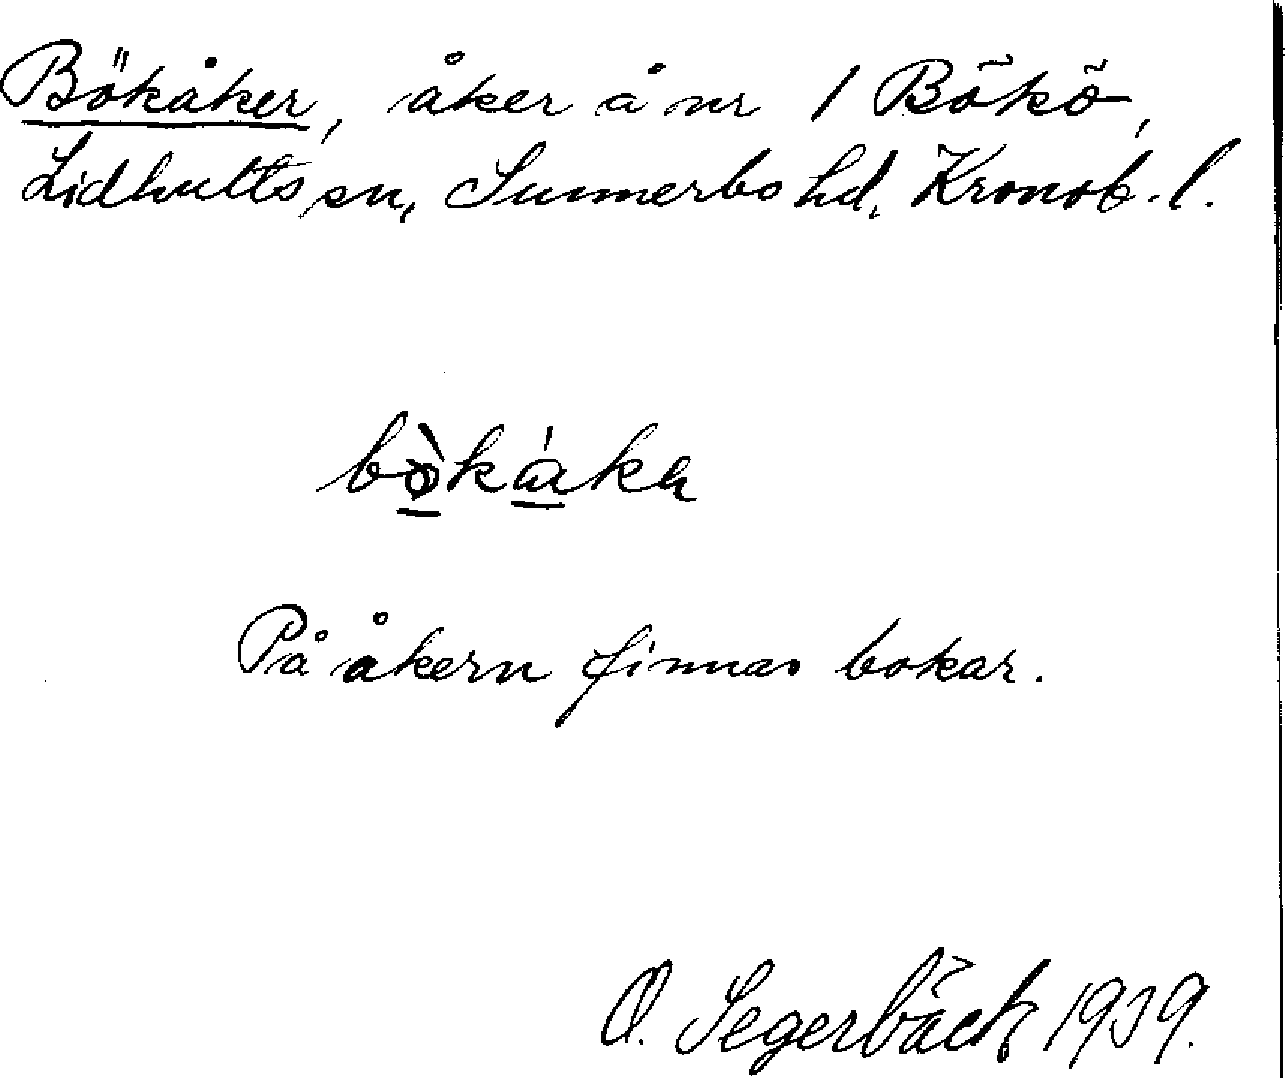 Bökåker, åker å nr 1 Bökö,
Lidhults sn, Sunnerbo hd, Kronob. l.
På åkern finnas bokar.
O. Segerbäck 1939.